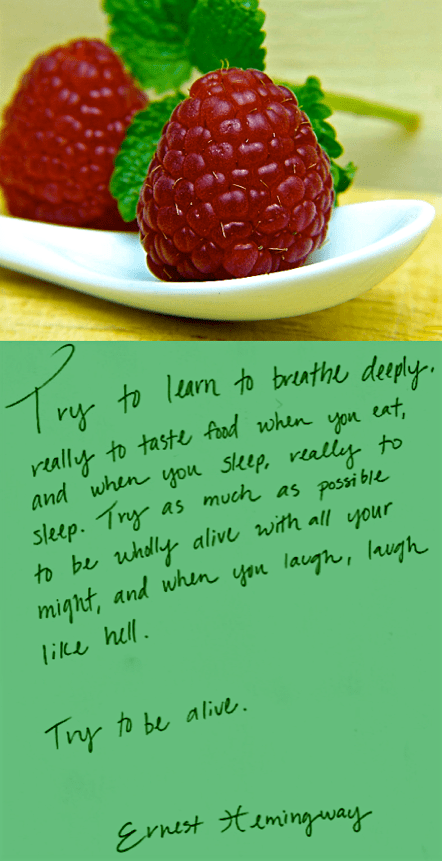 Try to learn to breathe deeply.
really to taste food when you eat,
and when you sleep, really to
sleep. Try as much as possible
to be wholly alive with all your
might, and when you laugh, laugh
like hell.
Try to be alive.
Ernest Hemingway